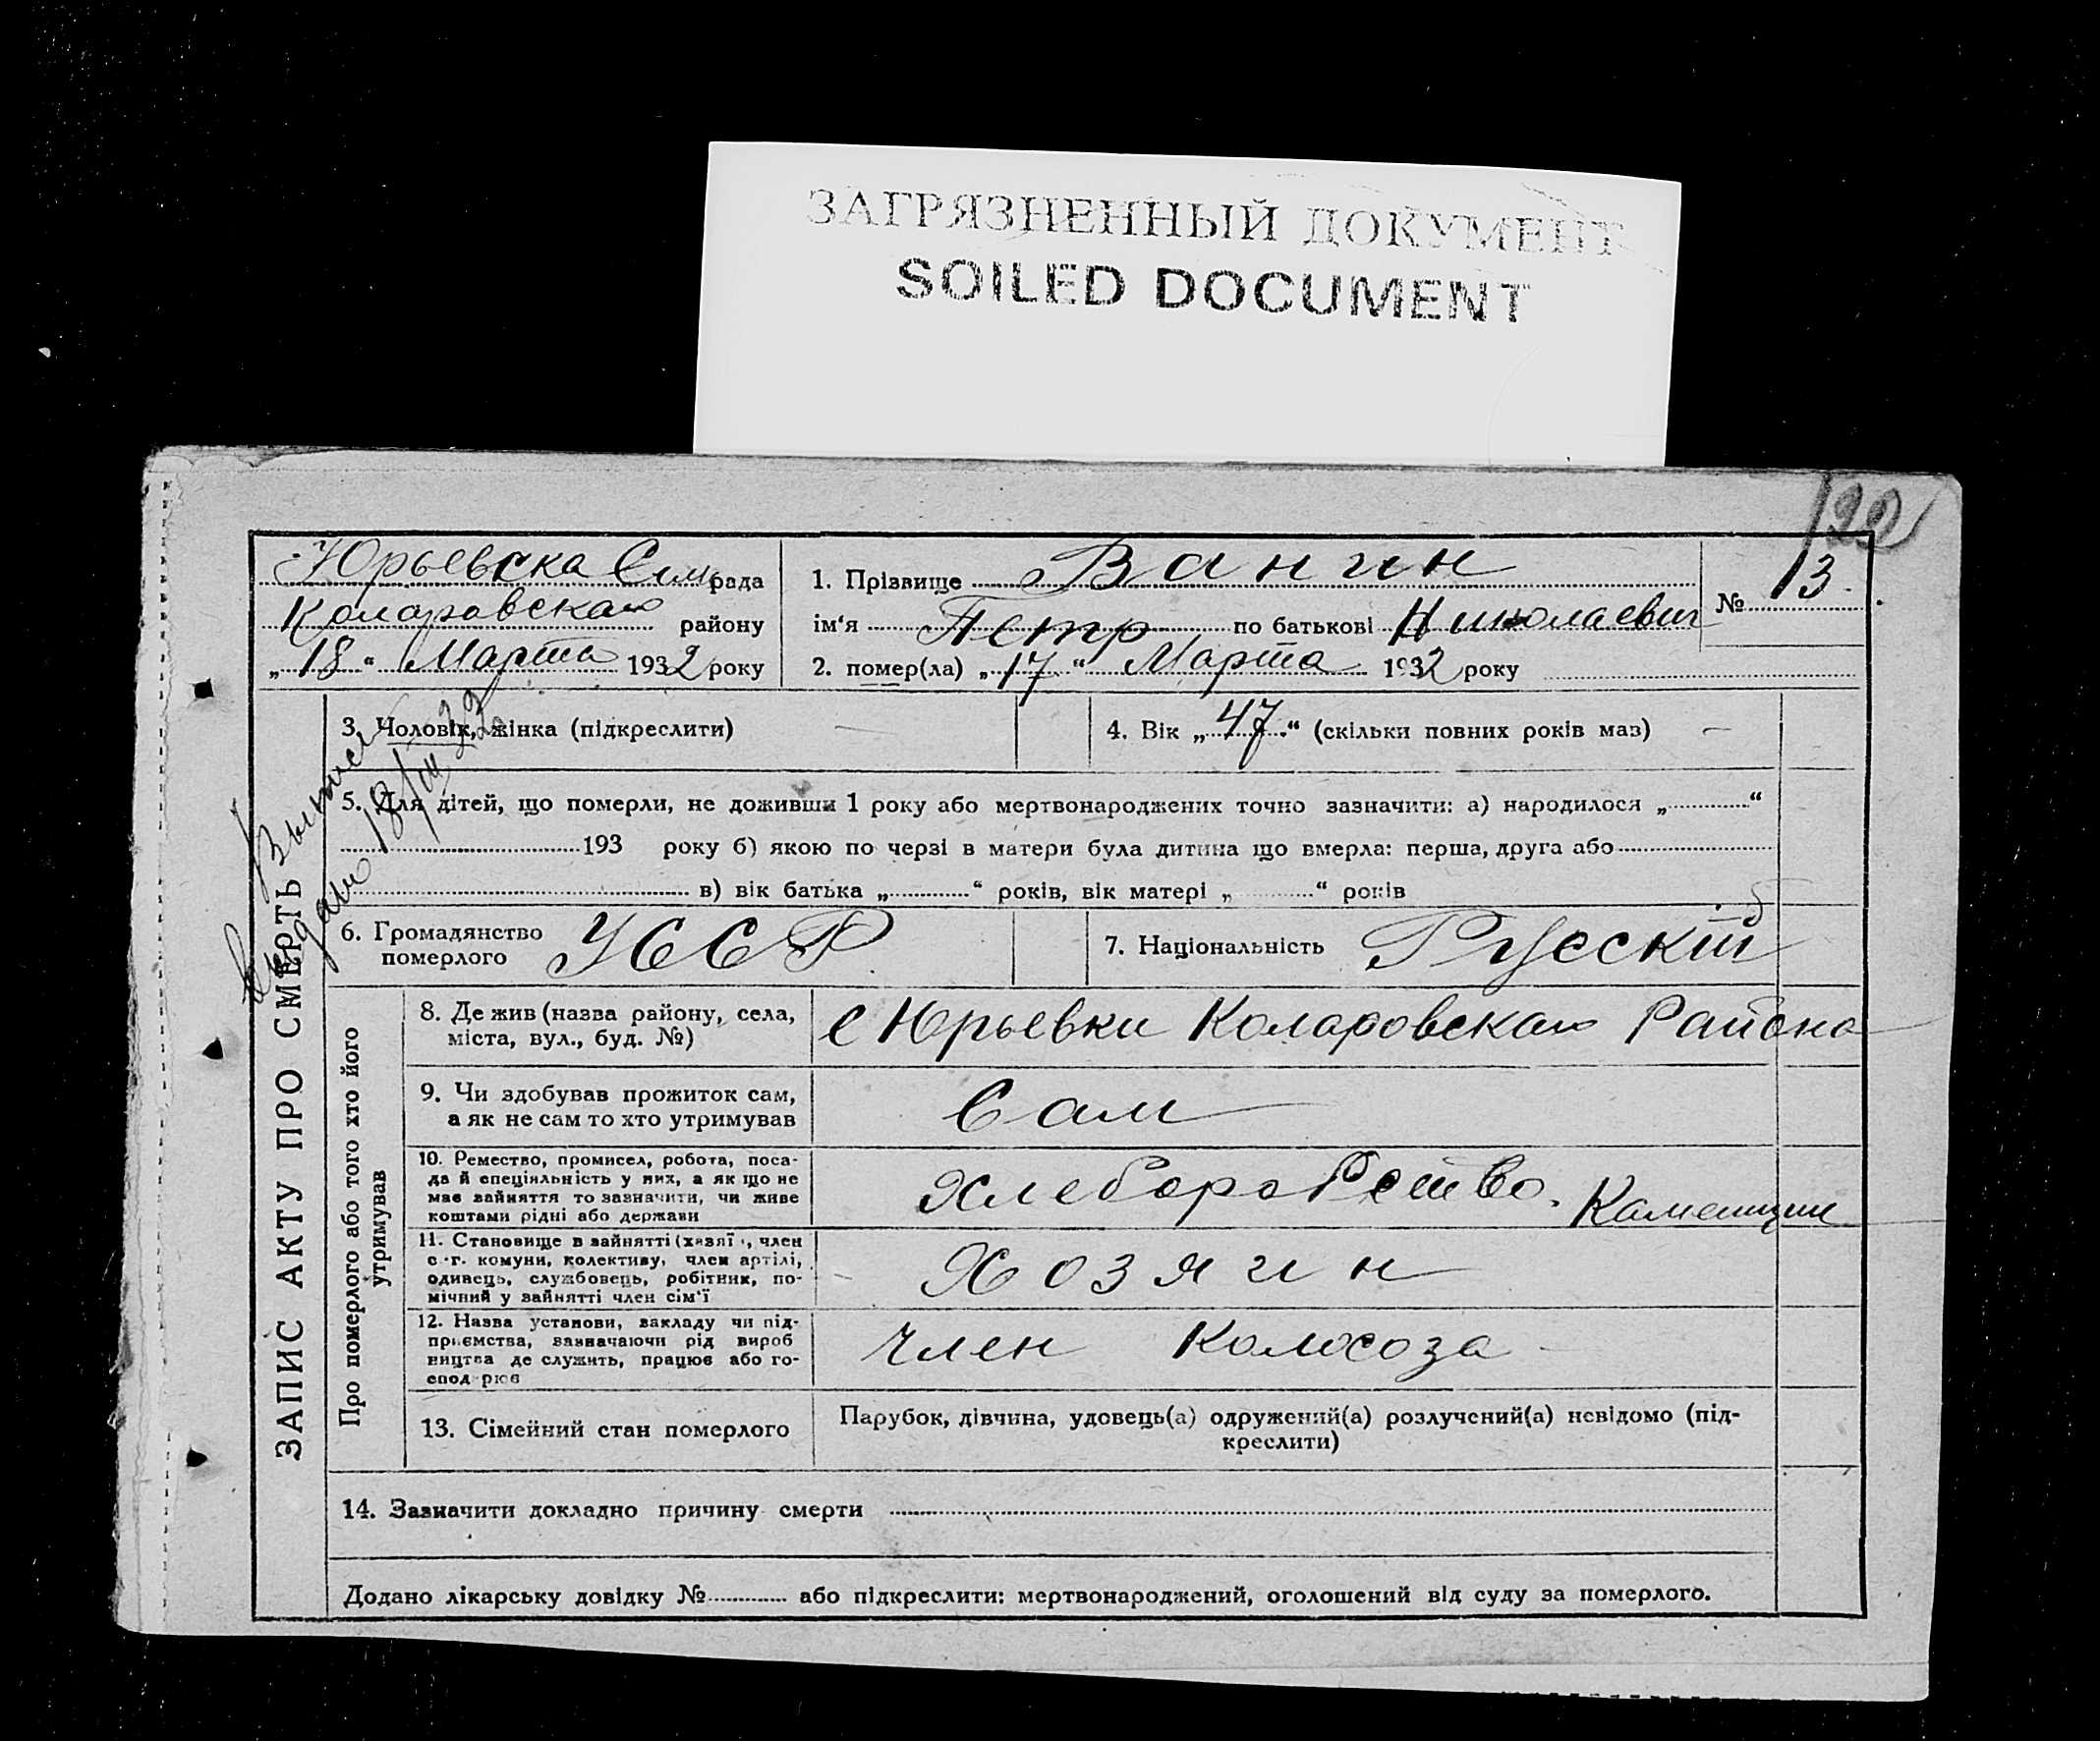 ЗАГРЯЗНЕННЫЙ ДОКУМЕНТ
SOILED DOCUMENT
Юрьевска Сільрада
Коларовскаго району
„18“ Марта 1932 року
1. Прізвище Вангин
ім‘я Петр по батькові Николаевич
2. помер(ла) „17“ Марта 1932 року
№ 13
ЗАПИС АКТУ ПРО СМЕРТЬ
18/III 32
3. Чоловік, жінка (підкреслити)
4. Вік „47“ (скільки повних років мав)
5. Для дітей, що померли, не доживши 1 року або мертвонароджених точно зазначити: а) народилося „ “
193 року б) якою по черзі в матери була дитина що вмерла: перша, друга або
в) вік батька „ “ років, вік матері „ “ років
6. Громадянство
померлого УССР
7. Національність Русский
Про померлого або того хто його
утримував
8. Де жив (назва району, села,
міста, вул., буд. №)
с Юрьевки Коларовскаго Района
9. Чи здобував прожиток сам,
а як не сам то хто утримував
Сам
10. Ремество, промисел, робота, поса-
да й спеціяльність у них, а як що не
має зайняття то зазначити, чи живе
коштами рідні або держави
Хлеборобство. Каменщик
11. Становище в зайнятті (хазяї , член
с-г. комуни, колективу, член артілі,
одинець, службовець, робітник, по-
мічний у зайнятті член сім‘ї
Хозяин
12. Назва установи, закладу чи під-
приємства, зазначаючи рід вироб
ництва де служить, працює або го-
спод рює
Член Колхоза
13. Сімейний стан померлого
Парубок, дівчина, удовець(а) одружений(а) розлучений(а) невідомо (під-
креслити)
14. Зазначити докладно причину смерти
Додано лікарську довідку № або підкреслити: мертвонароджений, оголошений від суду за померлого.